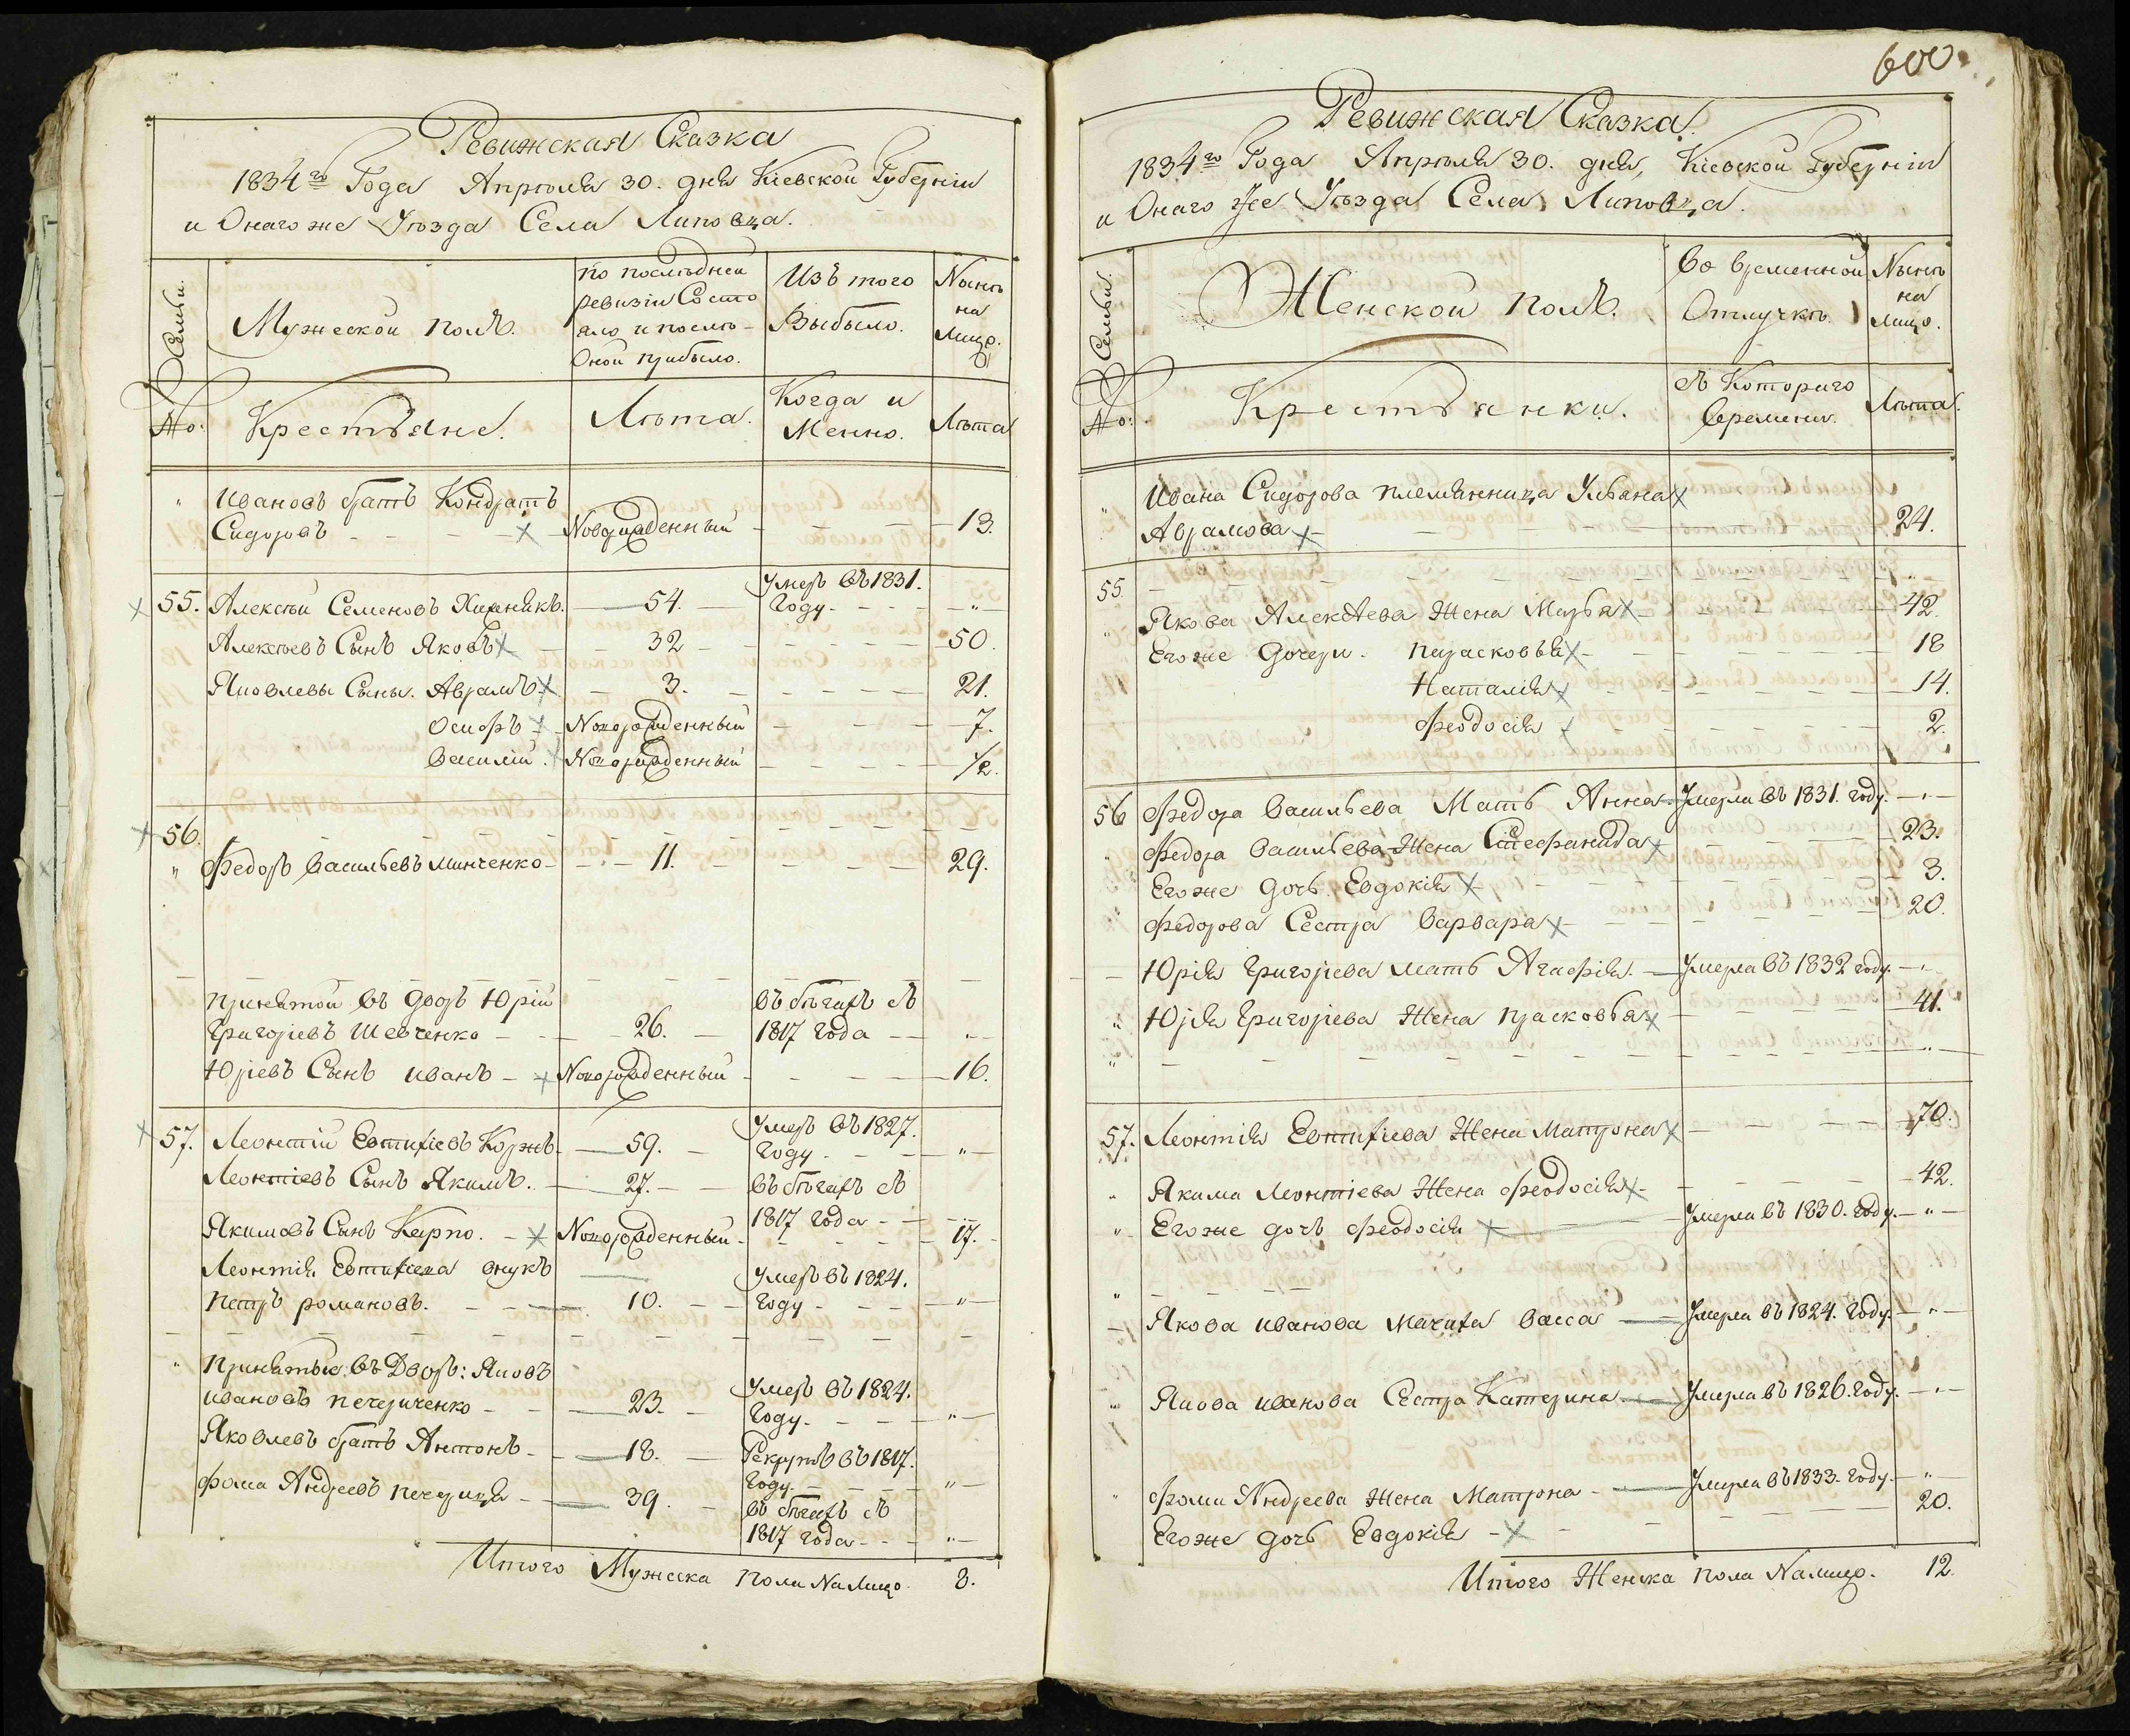 Ревижская Сказка
1834го Года Апрѣля 30. дня Кіевской Губерніи
и Онаго же Уѣзда Села Липовца.
Семьи.
Мужеской полъ.
по послѣдней
ревизіи Состо
яло и послѣ-
Оной прибыло.
Изъ того
Выбыло.
Нынѣ
на
Лицо.
No.
Крестьяне.
Лѣта.
Когда и
Менно.
Лѣта
" Ивановъ братъ Кондратъ
Сидоровъ - Новорожденный - 13.
55. Алексѣй Семеновъ - 54. - Умеръ въ 1831.
Году. - "
Алексѣевъ Сынъ Яковъ - 32 - 50.
Яковлевы Сыны. Аврамъ - 3. - 21.
Осифъ - Новорожденный - 7.
Василій. Новорожденный - 1/2.
56.
" Федоръ Васильевъ Минченко - 11. - 29.
принятой въ дворъ Юрій
Григоріевъ Шевченко - 26. - въ бѣгахъ съ
1817 года - "
Юріевъ Сынъ Иванъ - Новорожденный - 16.
57. Леонтій Евтихіевъ Коржъ - 59. - Умеръ въ 1827.
Году - "
Леонтіевъ Сынъ Якимъ. - 27. - въ бѣгахъ съ
1817 года -
Якимовъ Сынъ Карпо. - Новорожденный - 17.
Леонтія Евтихіева внукъ
Петръ романовъ. - 10. - Умеръ въ 1824.
Году - "
" Принятые въ Дворъ: Яковъ
Ивановъ печериченко - 23. - Умеръ въ 1824.
Году. - "
Яковлевъ братъ Антонъ - 18. - Рекрутъ въ 1817.
Году. - "
Фома Андреевъ печерица - 39. - въ бѣгахъ съ
1817 года - "
Итого Мужеска пола На Лицо. 8.
600.
Ревижская Сказка.
1834го Года Апрѣля 30. дня, Кіевской Губерніи
и Онаго Же Уѣзда Села Липовца.
Семьи.
Женской полъ.
Во временной
Отлучкѣ.
Нынѣ
на
Лицо.
No.
Крестьянки.
съ Котораго
Времени.
Лѣта.
" Ивана Сидорова племянница Ульяна
Аврамова - 24.
55. - "
" Якова Алексѣева Жена Марья - 42.
Егоже Дочери. Парасковья - 18
Наталія - 14.
Феодосія - 2.
56 Федора Васильева Мать Анна - Умерла въ 1831. году. - "
" Федора Васильева Жена Стефанида - 23.
Егоже Дочь Евдокія - 3.
Федорова Сестра Варвара - 20.
Юрія Григорьева мать Агафія. - Умерла въ 1832 году. - "
" Юрія Григоріева Жена прасковья - 41.
" - "
57. Леонтія Евтихіева Жена Матрона - 70.
" Якима Леонтіева Жена Феодосія - 42.
" Егоже дочь Феодосія - Умерла въ 1830. году. - "
"
Якова Иванова Мачиха Васса - Умерла въ 1824. Году. - "
" Якова Иванова Сестра Катерина - Умерла въ 1826. Году. - "
" Фомы Андреева Жена Матрона - Умерла въ 1833. Году. - "
Егоже дочь Евдокія - 20.
Итого Женска пола На лицо. 12.